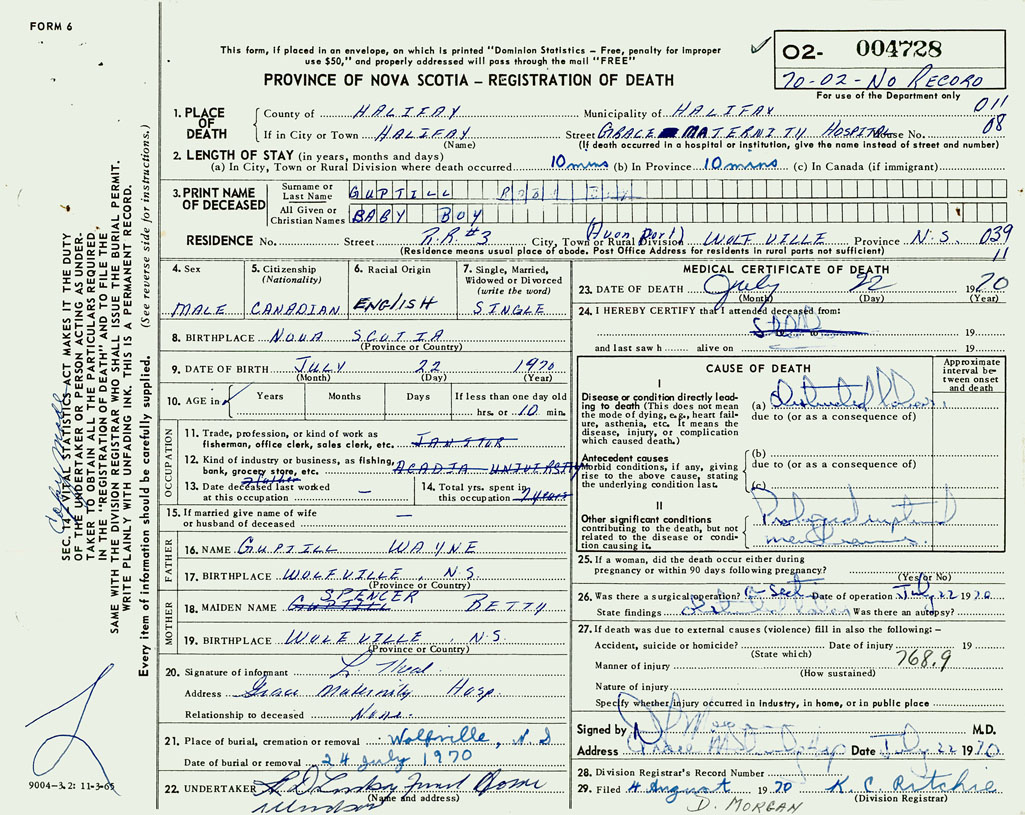 FORM 6
This form, if placed in an envelope, on which is printed "Dominion Statistics – Free, penalty for improper
use $50," and properly addressed will pass through the mail "FREE"
PROVINCE OF NOVA SCOTIA – REGISTRATION OF DEATH
O2- 004728
70-02-No RECORD
For use of the Department only
011
08
1. PLACE OF DEATH
County of HALIFAX Municipality of HALIFAX
If in City or Town HALIFAX Street GRACE MATERNITY HOSPITAL House No.
(Name) (If death occurred in a hospital or institution, give the name instead of street and number)
2. LENGTH OF STAY (in years, months and days)
(a) In City, Town or Rural Division where death occurred 10 mins (b) In Province 10 mins (c) In Canada (if immigrant)
3. PRINT NAME OF DECEASED
Surname or Last Name GUPTILL
All Given or Christian Names BABY BOY
RESIDENCE No. Street R.R. #3 City, Town or Rural Division (Avon Port) WOLFVILLE Province N.S. 039
11
(Residence means usual place of abode. Post Office Address for residents in rural parts not sufficient)
4. Sex MALE
5. Citizenship (Nationality) CANADIAN
6. Racial Origin ENGLISH
7. Single, Married, Widowed or Divorced (write the word) SINGLE
8. BIRTHPLACE NOVA SCOTIA
(Province or Country)
9. DATE OF BIRTH JULY 22 1970
(Month) (Day) (Year)
10. AGE in Years Months Days If less than one day old
hrs. or 10 min.
OCCUPATION
11. Trade, profession, or kind of work as
fisherman, office clerk, sales clerk, etc. JANITOR
12. Kind of industry or business, as fishing,
bank, grocery store, etc. ACADIA UNIVERSITY
father
13. Date deceased last worked
at this occupation –
14. Total yrs. spent in
this occupation 7 years
15. If married give name of wife
or husband of deceased –
FATHER
16. NAME GUPTILL WAYNE
17. BIRTHPLACE WOLFVILLE, N.S.
(Province or Country)
MOTHER
SPENCER
18. MAIDEN NAME GUPTILL BETTY
19. BIRTHPLACE WOLFVILLE, N.S.
(Province or Country)
20. Signature of informant
Address Grace Maternity Hosp.
Relationship to deceased None.
21. Place of burial, cremation or removal Wolfville, N S
Date of burial or removal 24 July 1970
22. UNDERTAKER Home
(Name and address)
Windsor
MEDICAL CERTIFICATE OF DEATH
23. DATE OF DEATH July 22 1970
(Month) (Day) (Year)
24. I HEREBY CERTIFY that I attended deceased from:
to 19
and last saw h alive on 19
CAUSE OF DEATH
Approximate interval between onset and death
I
Disease or condition directly leading to death (This does not mean the mode of dying, e.g., heart failure, asthenia, etc. It means the disease, injury, or complication which caused death.)
(a)
due to (or as a consequence of)
Antecedent causes
Morbid conditions, if any, giving rise to the above cause, stating the underlying condition last.
(b)
due to (or as a consequence of)
(c)
II
Other significant conditions
contributing to the death, but not related to the disease or condition causing it.
Prolonged ruptured
membranes
25. If a woman, did the death occur either during
pregnancy or within 90 days following pregnancy?
(Yes or No)
26. Was there a surgical operation? C-Sect Date of operation July 22 1970
State findings Was there an autopsy?
27. If death was due to external causes (violence) fill in also the following: –
Accident, suicide or homicide? Date of injury 19
(State which)
768.9
Manner of injury
(How sustained)
Nature of injury
Specify whether injury occurred in industry, in home, or in public place
Signed by M.D.
Address Date July 22 1970
28. Division Registrar's Record Number
29. Filed 4 August 1970 K. C. Ritchie
(Division Registrar)
D. MORGAN
SEC. 14–VITAL STATISTICS ACT MAKES IT THE DUTY
OF THE UNDERTAKER OR PERSON ACTING AS UNDER-
TAKER TO OBTAIN ALL THE PARTICULARS REQUIRED
IN THE "REGISTRATION OF DEATH" AND TO FILE THE
SAME WITH THE DIVISION REGISTRAR WHO SHALL ISSUE THE BURIAL PERMIT.
WRITE PLAINLY WITH UNFADING INK. THIS IS A PERMANENT RECORD.
Every item of information should be carefully supplied. (See reverse side for instructions.)
9004-3.2: 11-3-65